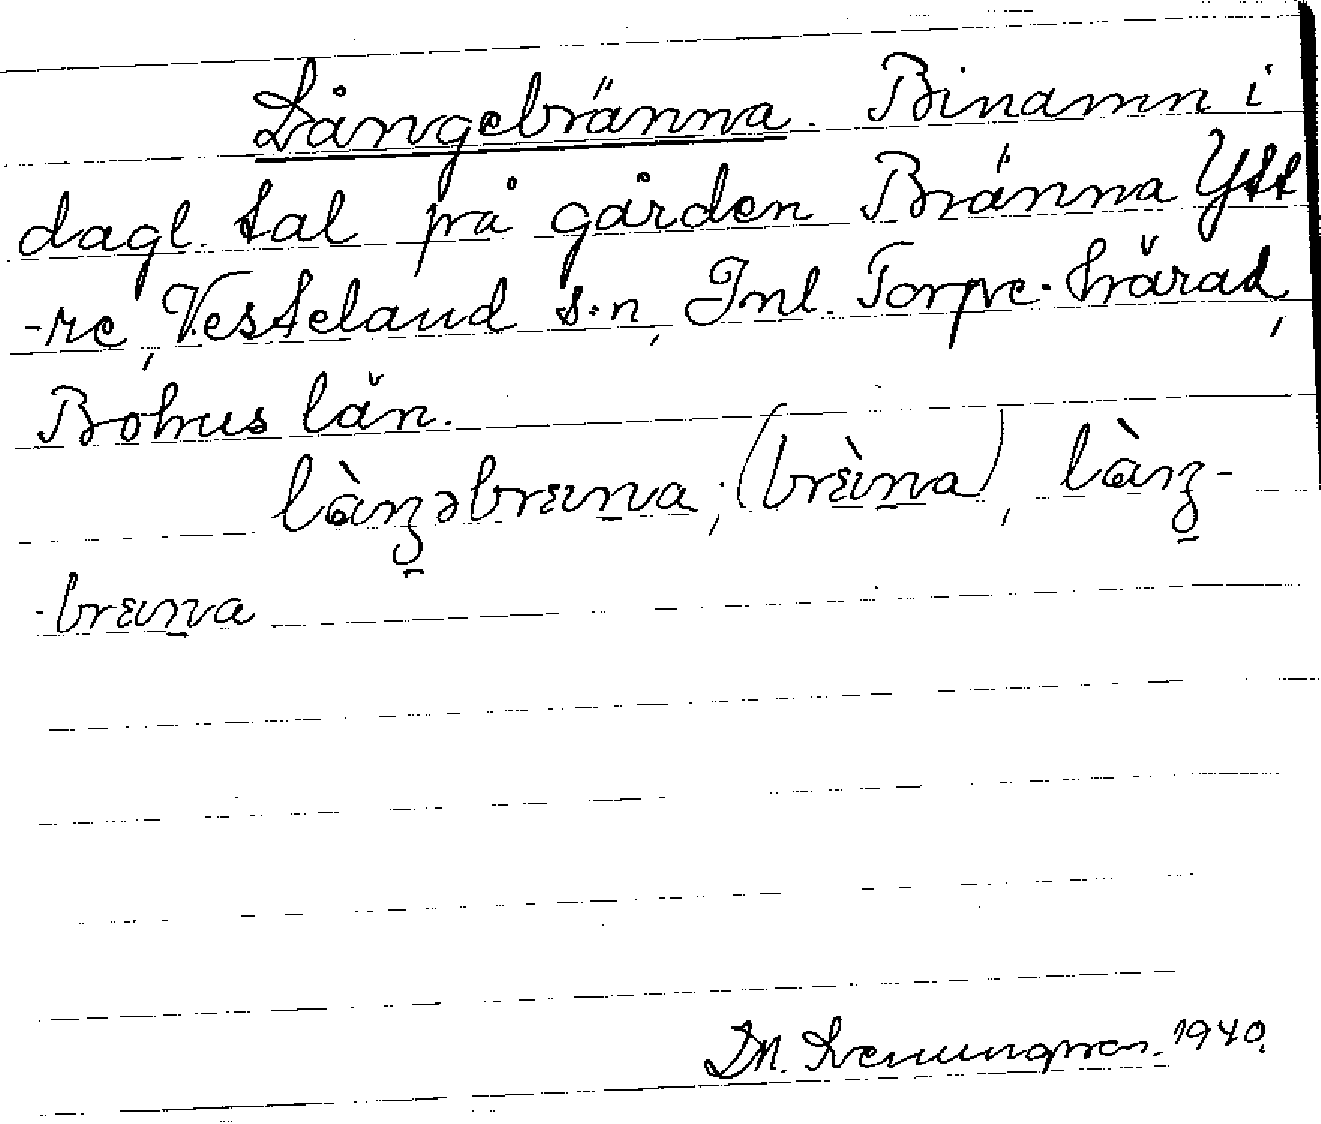 Långebränna. Binamn i
dagl. tal på gården Bränna Ytt
-re, Vesteland s:n, Inl. Torpe-härad,
Bohus län.
làŋəbrɛna; (brɛ̀na), làŋ-
-brɛna
1940.